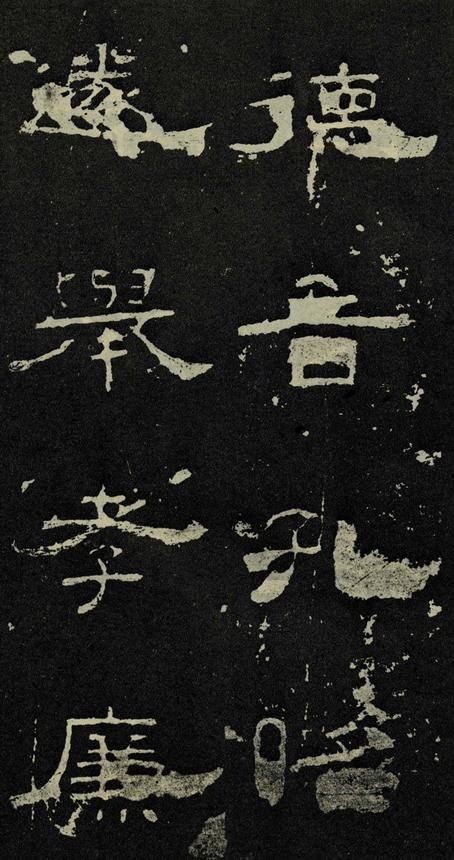 德音孔昭
遂舉孝廉